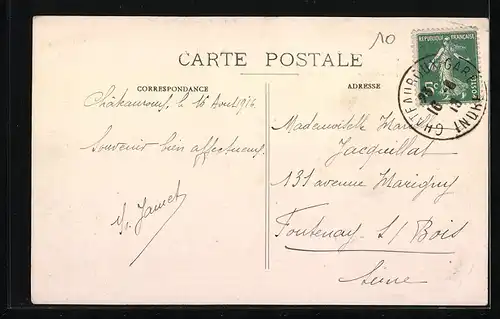 10
CARTE POSTALE
RÉPUBLIQUE FRANÇAISE
5c
POSTES
CHATEAUROUX-GARE
INDRE
16 - 8
CORRESPONDANCE
ADRESSE
Châteauroux, le 16 Août
Souvenir bien affectueux.
Y. Jamet
Mademoiselle
Jacquillat
131 avenue Marigny
Fontenay S/ Bois
Seine